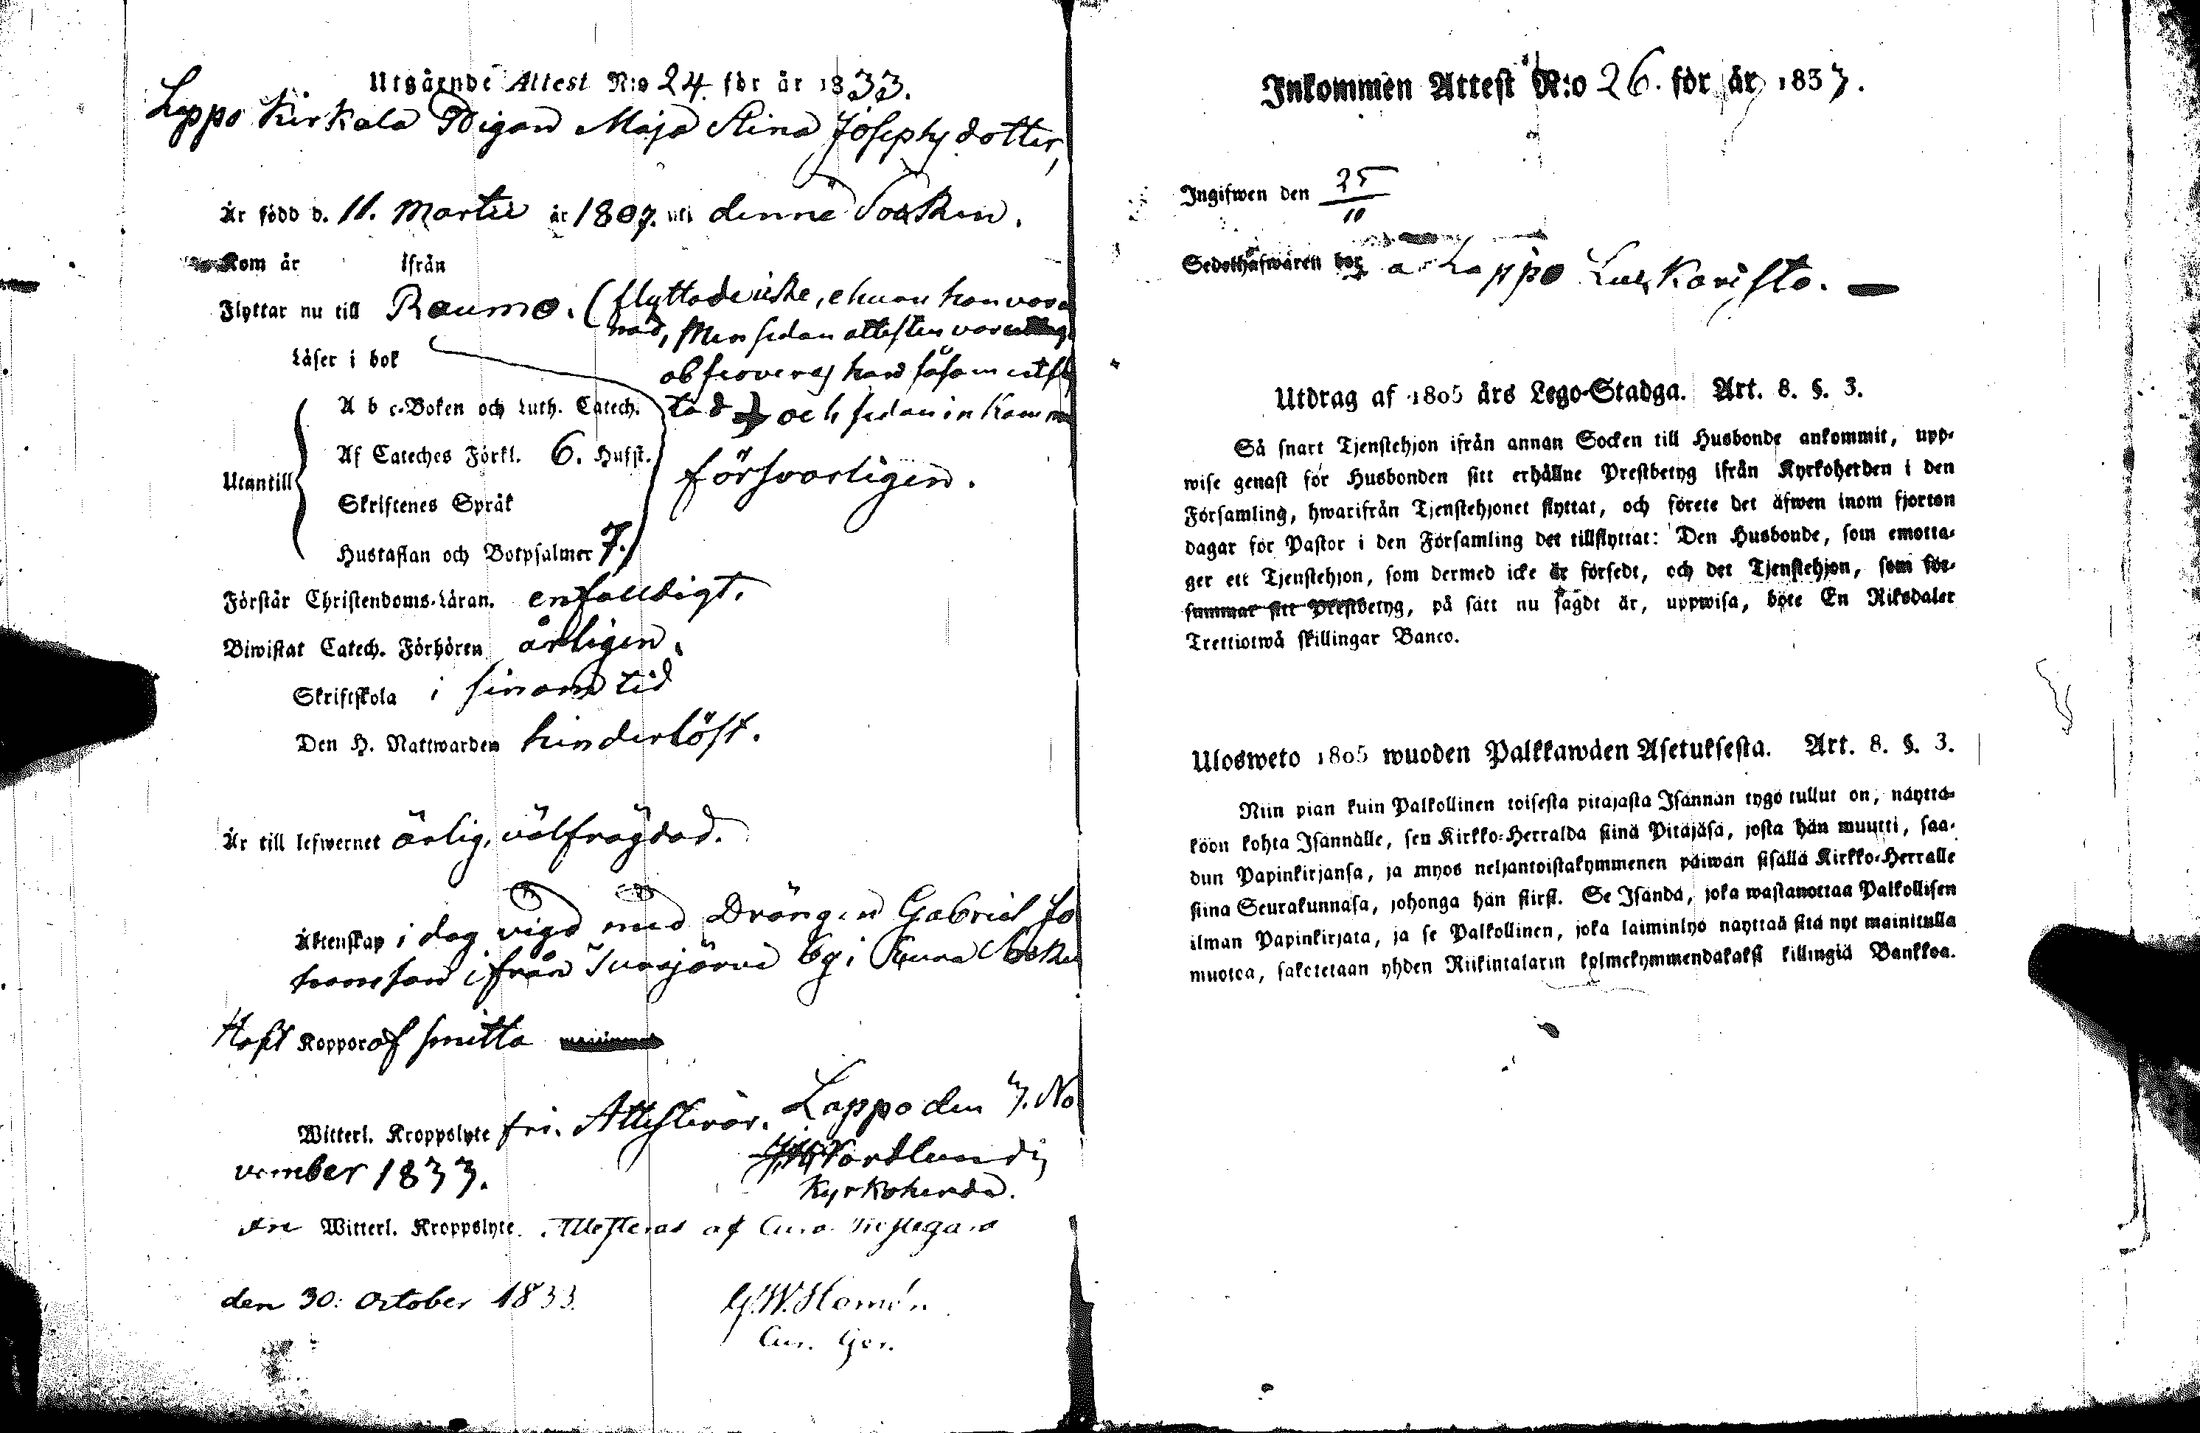 Utgående Attest N:o 24. för år 1833.
Lappo Kirkala Pigan Maja Stina Josephsdotter,
Är född d. 11. Martii år 1807. uti denne Socken.
Kom år ifrån
Flyttar nu till Raumo. (flyttade icke, ehuru hon var
nad, Men sedan attesten var
Läser i bok
observeras hon såsom utfly
A b c-Boken och Luth. Catech. tad och sedan inkomm
Af Cateches Förkl. 6. Hufst.
Utantill försvarligen.
Skriftenes Språk
Hustaflan och Botpsalmer 7.)
Förstår Christendoms-Läran. enfalldigt.
Biwistat Catech. Förhören årligen.
Skriftskola i sinom tid
Den H. Nattwarden hinderlöst.
Är till lefwernet ärlig, välfrägdad.
Äktenskap i dag vigd med Drängen Gabriel Jo
hansson ifrån Turajärvi by i Eura Socken
Haft Koppor af smitta
Witterl. Kroppslyte fri. Attesterar. Lappo den 7. No
vember 1833. Nordlund
Kyrkoherde.
Witterl. Kroppslyte. Attesteras af Eura Prestegård
den 30: October 1833. G.W. Homén.
Inkommen Attest N:o 26. för år 1837.
Ingifwen den 25/10
Sedelhafwaren bor å Lappo
Utdrag af 1805 års Lego-Stadga. Art. 8. §. 3.
Så snart Tjenstehjon ifrån annan Socken till Husbonde ankommit, upp-
wise genast för Husbonden sitt erhållne Prestbetyg ifrån Kyrkoherden i den
Församling, hwarifrån Tjenstehjonet flyttat, och förete det äfwen inom fjorton
dagar för Pastor i den Församling det tillflyttat: Den Husbonde, som emotta-
ger ett Tjenstehjon, som dermed icke är försedt, och det Tjenstehjon, som för-
summar sitt Prestbetyg, på sätt nu sagdt är, uppwisa, böte En Riksdaler
Trettiotwå skillingar Banco.
Ulosweto 1805 wuoden Palkkawäen Asetuksesta. Art. 8. §. 3.
Niin pian kuin Palkollinen toisesta pitäjästä Isännän tygö tullut on, näyttä-
köön kohta Isännälle, sen Kirkko-Herralda siinä Pitäjäsä, josta hän muutti, saa-
dun Papinkirjansa, ja myös neljäntoistakymmenen päiwän sisällä Kirkko-Herralle
siinä Seurakunnasa, johonga hän siirsi. Se Isändä, joka wastanottaa Palkollisen
ilman Papinkirjata, ja se Palkollinen, joka laiminlyö näyttää sitä nyt mainitulla
muotoa, saketetaan yhden Riikintalarin kolmekymmendäkaksi killingiä Bankkoa.